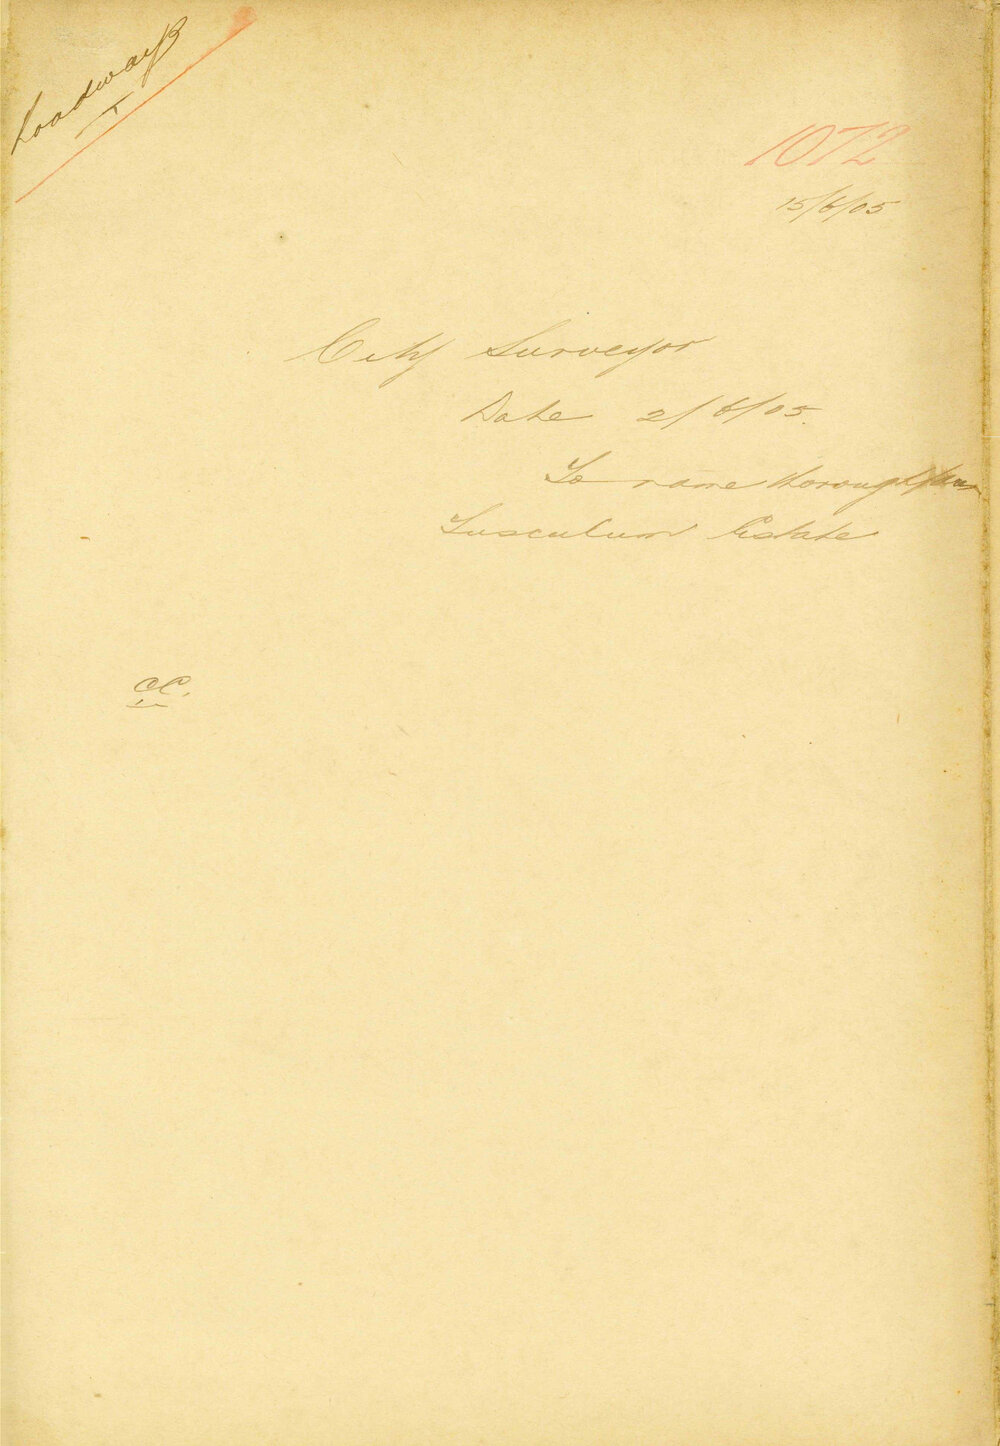 Roadways
1072
15/6/05
City Surveyor
Date 2/6/05.
To name thoroughfare
Tusculum Estate
CC.